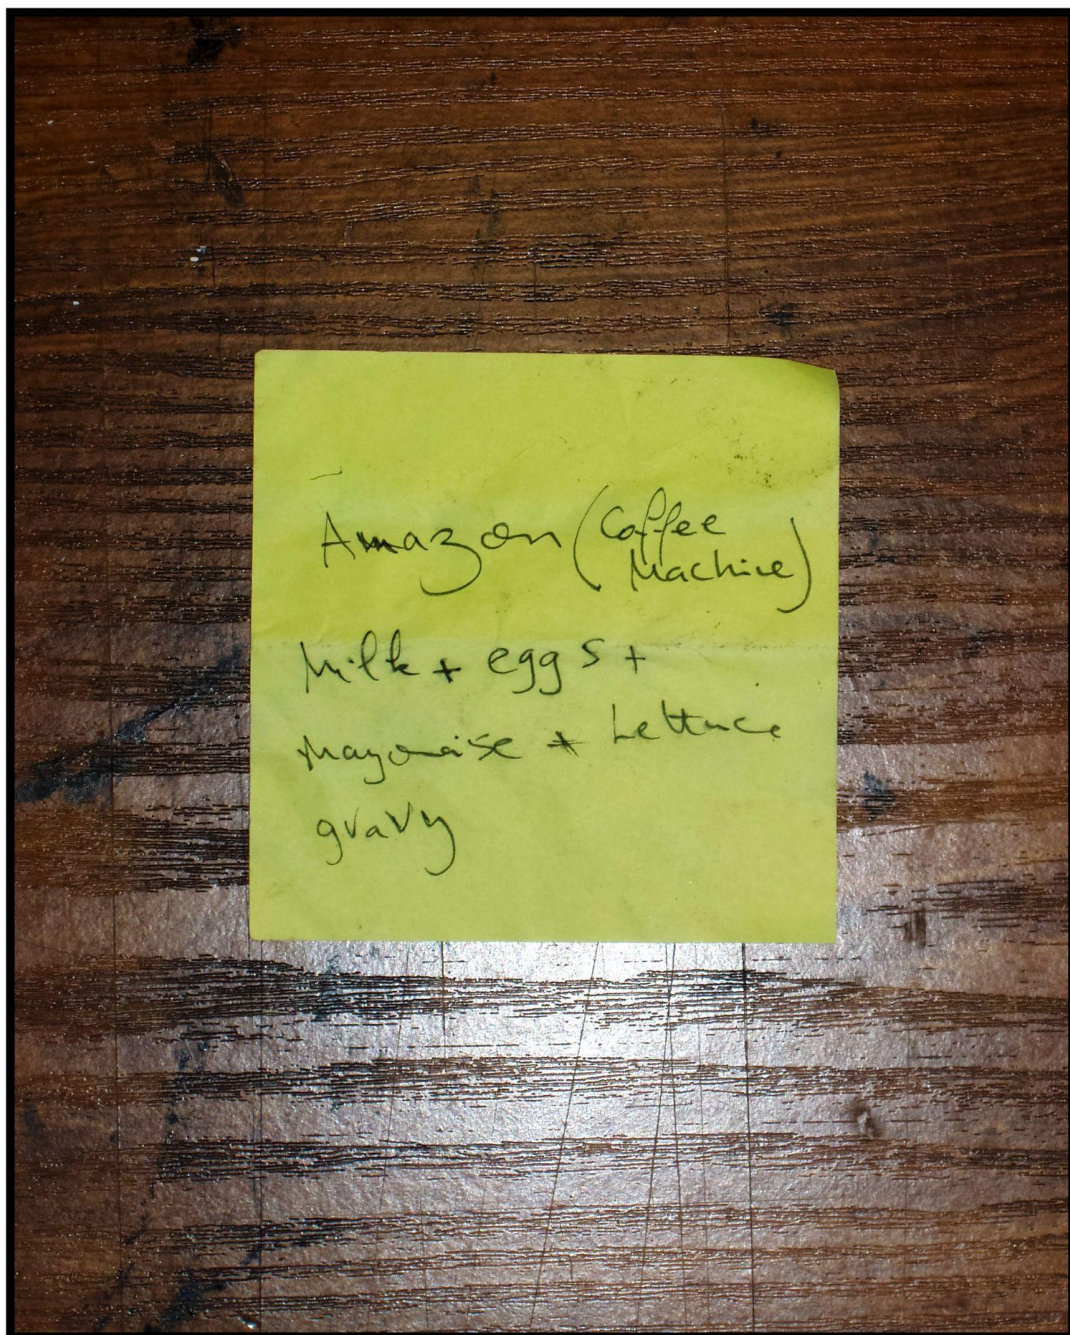 Amazon (Coffee
Machine)
Milk + eggs +
Mayonaise + Lettuce
gravy